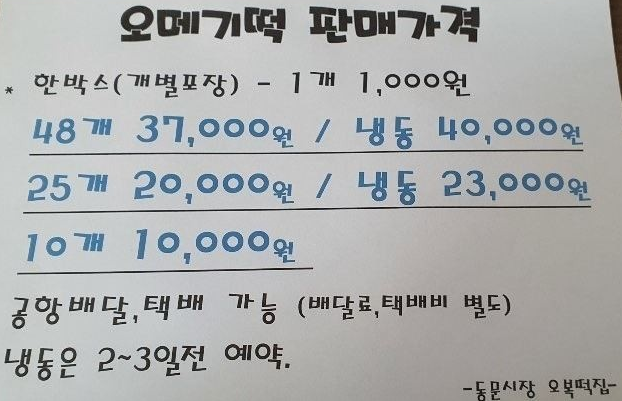 오메기떡 판매가격
* 한박스(개별포장) - 1개 1,000원
48개 37,000원 / 냉동 40,000원
25개 20,000원 / 냉동 23,000원
10개 10,000원
공항배달,택배 가능 (배달료,택배비 별도)
냉동은 2~3일전 예약.
-동문시장 오복떡집-